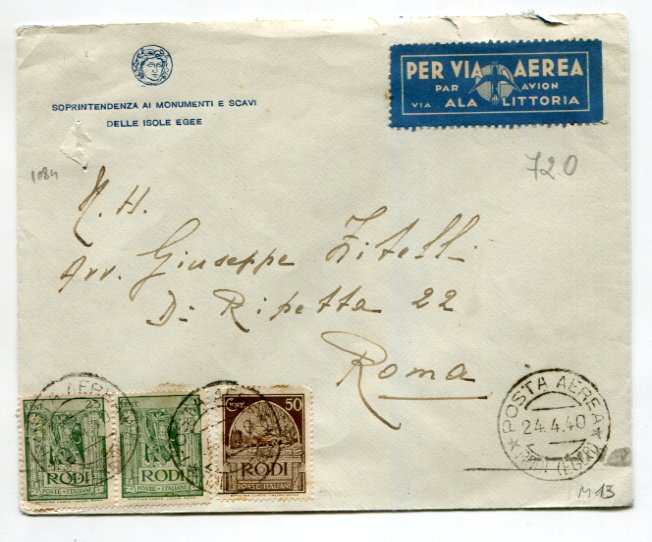 SOPRINTENDENZA AI MONUMENTI E SCAVI
DELLE ISOLE EGEE
PER VIA AEREA
PAR AVION
VIA ALA LITTORIA
1084
720
N. H.
Avv. Giuseppe Zitelli
Di Ripetta 22
Roma
25
RODI
POSTE ITALIANE
RODI
POSTE ITALIANE
CENT 50
RODI
POSTE ITALIANE
POSTA AEREA
24.4.40
RODI (EGEO)
M13